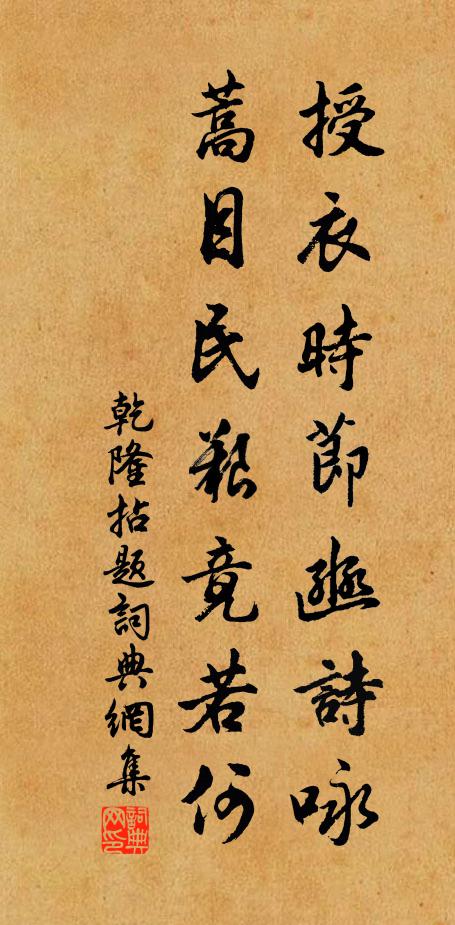 授衣時節豳詩咏
蒿目民艱竟若何
乾隆拈題詞典網集
詞典网印